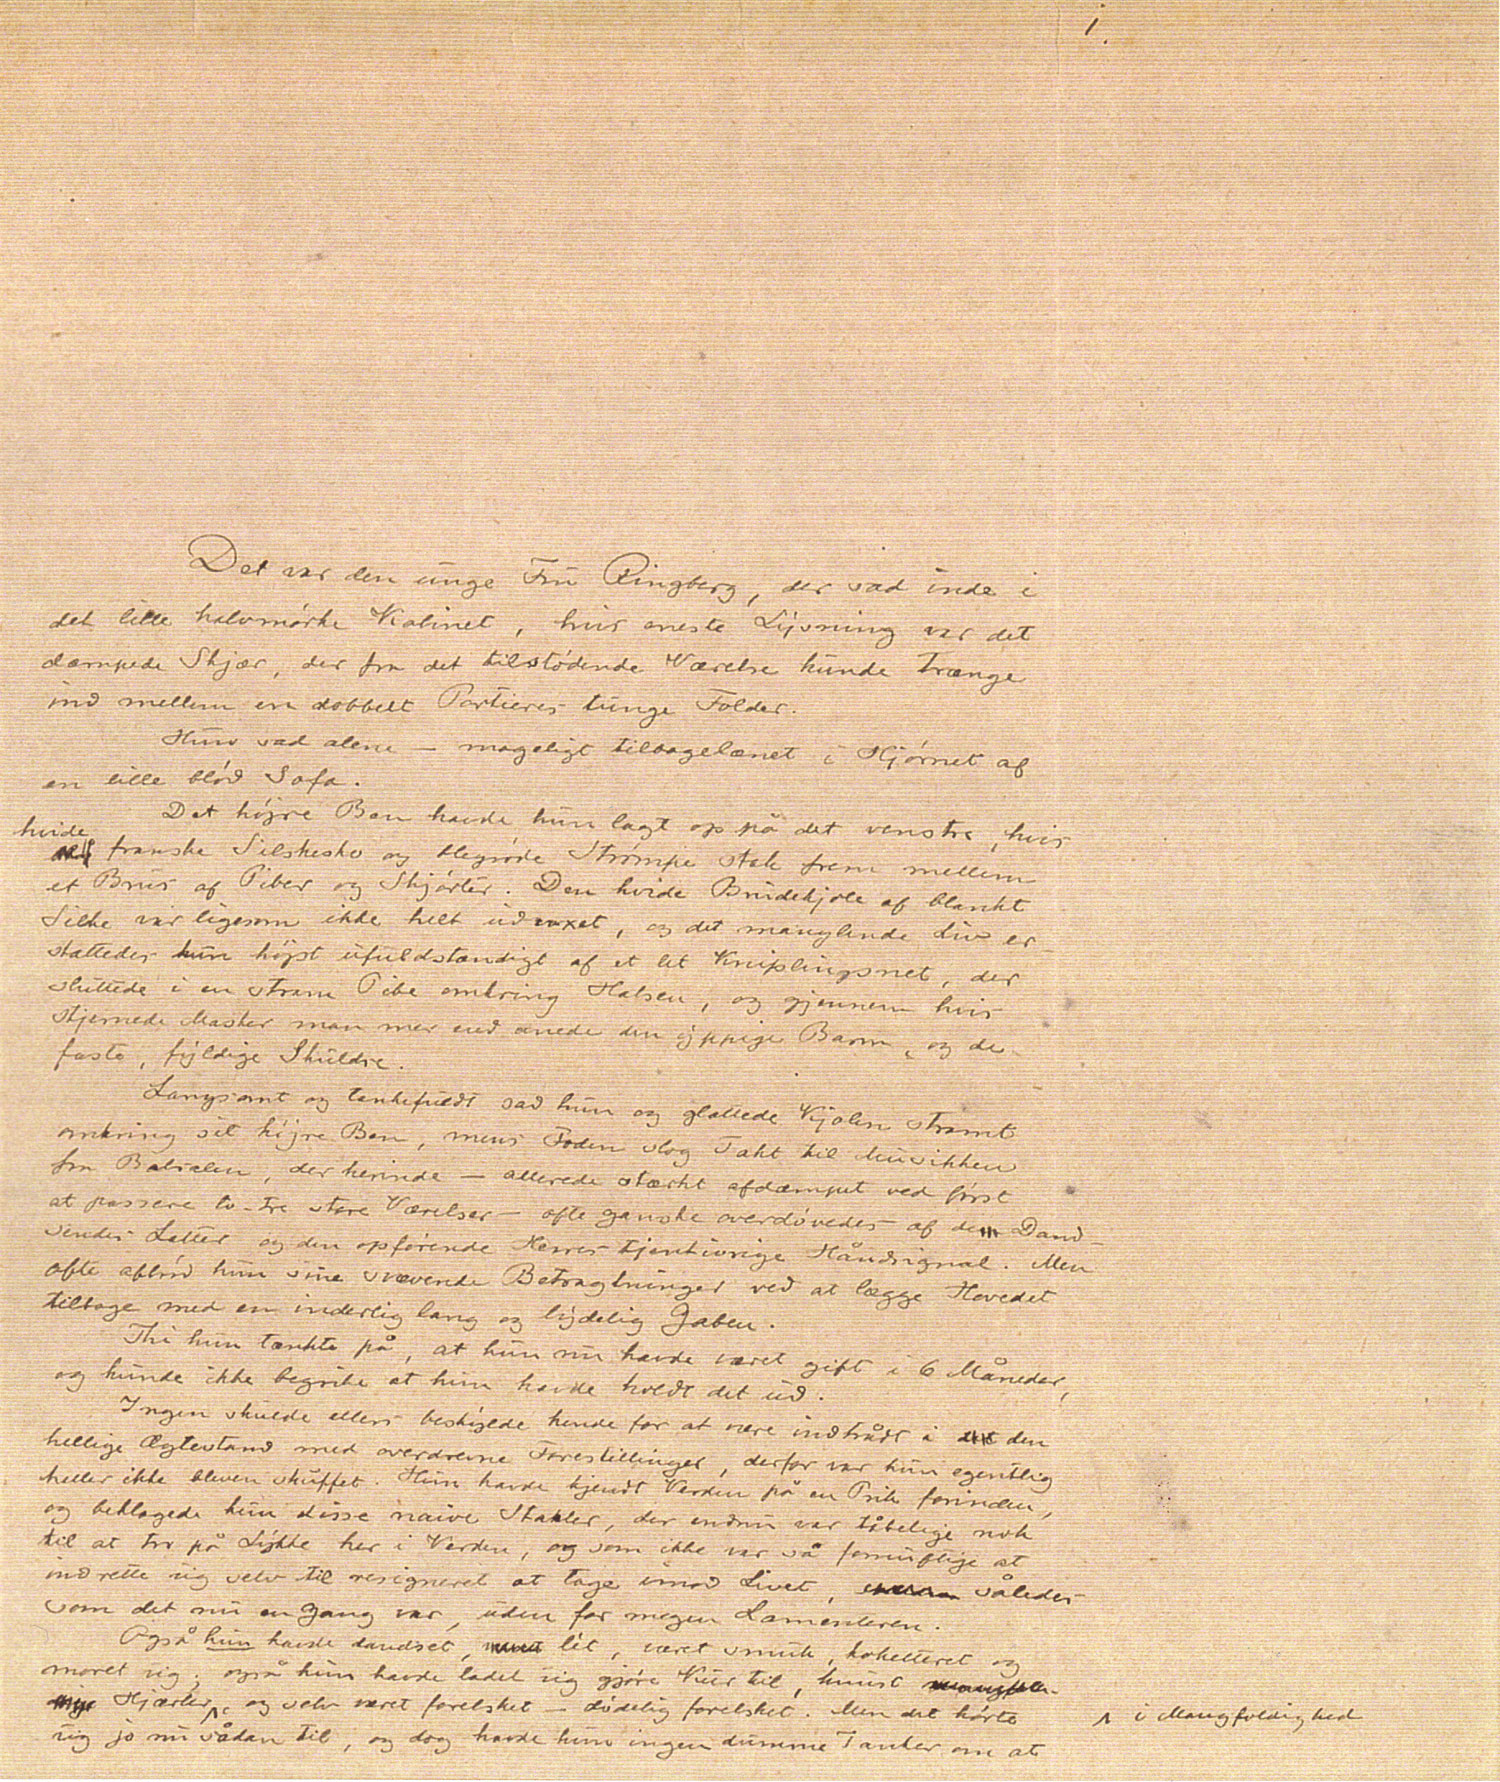 1.
Det var den unge Fru Ringberg, der sad inde i
det lille halvmørke Kabinet, hvis eneste Lysning var det
dæmpede Skjær, der fra det tilstødende Værelse kunde trænge
ind mellem en dobbelt Portieres tunge Folder.
Hun sad alene — mageligt tilbagelænet i Hjørnet af
en lille blød Sofa.
Det højre Ben havde hun lagt op på det venstre, hvis
hvide
franske Silkesko og blegrøde Strømpe stak frem mellem
et Brus af Piber og Skjørter. Den hvide Brudekjole af blankt
Silke var ligesom ikke helt udvoxet, og det manglende Liv er-
stattedes kun højst ufuldstændigt af et let Kniplingsnet, der
sluttede i en stram Pibe omkring Halsen, og gjennem hvis
stjernede Masker man mer end anede den yppige Barm, og de
faste, fyldige Skuldre.
Langsomt og tankefuldt sad hun og glattede Kjolen stramt
omkring sit højre Ben, mens Foden slog Takt til Musikken
fra Balsalen, der herinde — allerede stærkt afdæmpet ved først
at passere to-tre store Værelser — ofte ganske overdøvedes af de Dand-
sendes Latter og den opførende Herres tjentivrige Håndsignal. Men
ofte afbrød hun sine svævende Betragtninger ved at lægge Hovedet
tilbage med en inderlig lang og lydelig Gaben.
Thi hun tænkte på, at hun nu havde været gift i 6 Måneder,
og kunde ikke begribe at hun havde holdt det ud.
Ingen skulde ellers beskylde hende for at være indtrådt i den
hellige Ægtestand med overdrevne Forestillinger, derfor var hun egentlig
heller ikke bleven skuffet. Hun havde kjendt Verden på en Prik forinden,
og beklagede kun disse naive Stakler, der endnu var tåbelige nok
til at tro på Lykke her i Verden, og som ikke var så fornuftige at
indrette sig selv til resigneret at tage imod Livet, således
som det nu en Gang var, uden for megen Lamenteren.
Også hun havde dandset, lét, været smuk, koketteret og
moret sig; også hun havde ladet sig gjøre Kur til, knust
Hjærter ʌ og selv været forelsket — dødelig forelsket. Men det hørte
ʌ i Mangfoldighed
sig jo nu sådan til, og dog havde hun ingen dumme Tanker om at